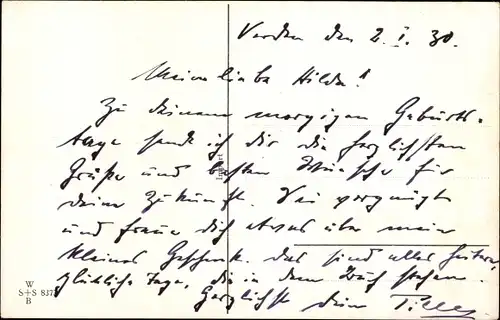 Verden den 2. I. 30.
Meine liebe Hilda!
Zu deinem morgigen Geburts-
tage sende ich dir die herzlichsten
Grüße und besten Wünsche für
deine Zukunft. Sei vergnügt
und freue dich etwas über mein
kleines Geschenk. Das sind alles heitere,
glückliche Tage, die in dem Buch stehen.
Herzlichst dein Tilly
W
S+S 837
B